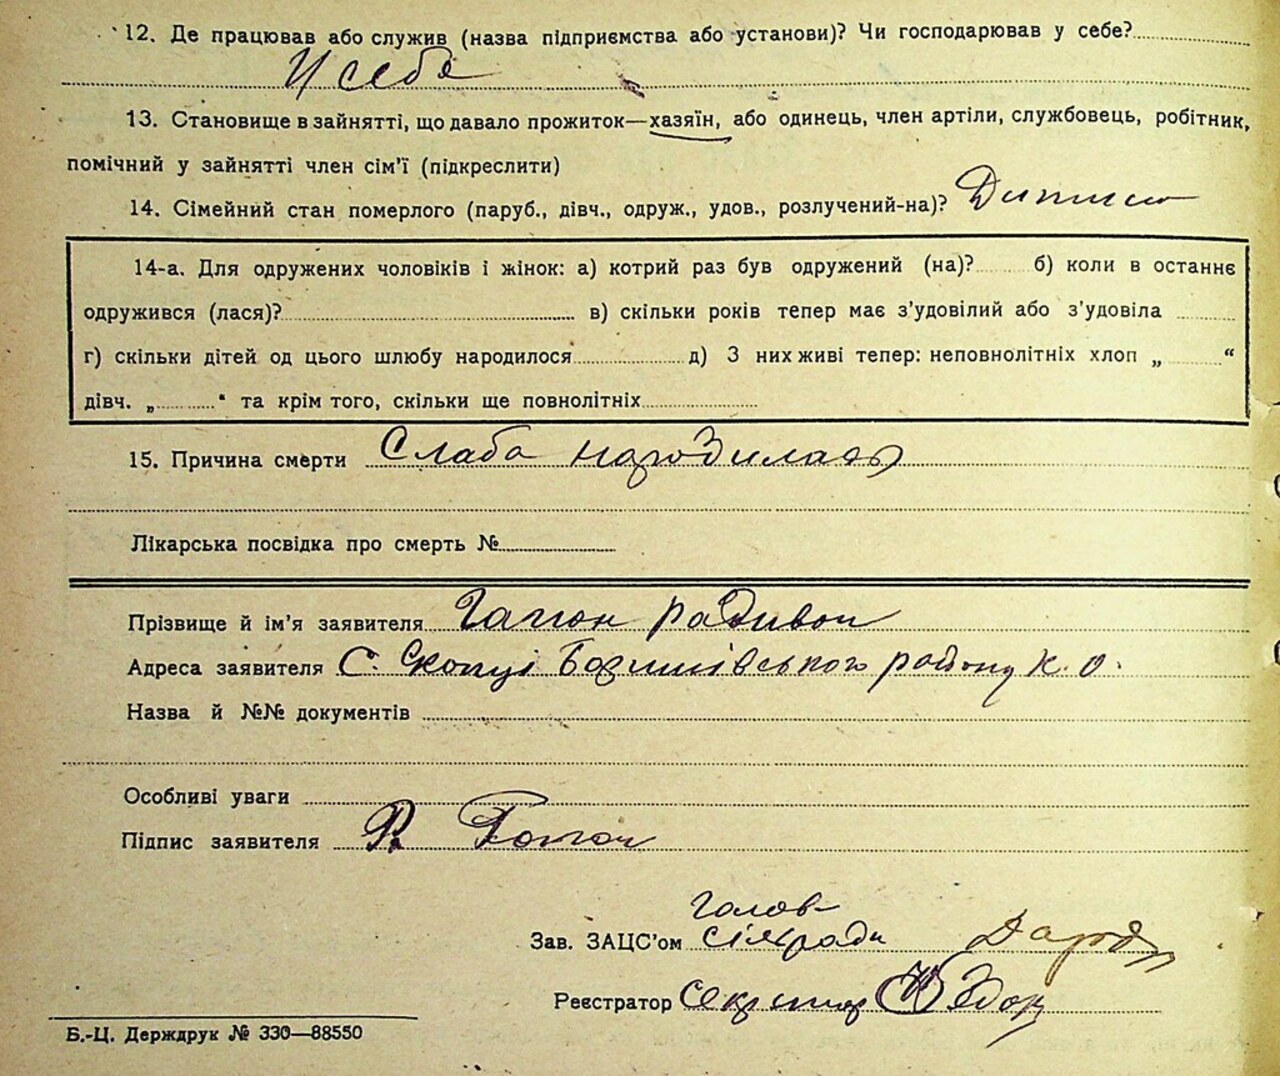 12. Де працював або служив (назва підприємства або установи)? Чи господарював у себе?
У себе
13. Становище в зайнятті, що давало прожиток—хазяїн, або одинець, член артіли, службовець, робітник,
помічний у зайнятті член сім'ї (підкреслити)
14. Сімейний стан померлого (паруб., дівч., одруж., удов., розлучений-на)? Дитина
14-а. Для одружених чоловіків і жінок: а) котрий раз був одружений (на)? б) коли в останнє
одружився (лася)? в) скільки років тепер має з'удовілий або з'удовіла
г) скільки дітей од цього шлюбу народилося д) З них живі тепер: неповнолітніх хлоп „ “
дівч. „ “ та крім того, скільки ще повнолітніх
15. Причина смерти Слаба народилась
Лікарська посвідка про смерть №
Прізвище й ім'я заявителя Гапон Радивон
Адреса заявителя С. Скопці Боришпівського району К. О.
Назва й №№ документів
Особливі уваги
Підпис заявителя Р. Гапон
Голов
Зав. ЗАЦС'ом сілради
Реєстратор Секретар
Б.-Ц. Держдрук № 330—88550